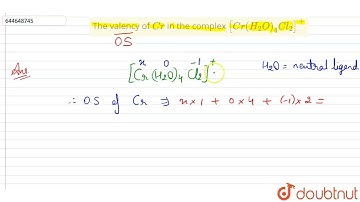 644648745
The valency of Cr in the complex [Cr(H₂O)₄Cl₂]⁺
OS
Ans.
x 0 -1
[Cr(H₂O)₄Cl₂]⁺
H₂O = neutral ligand.
∴ OS of Cr ⇒ x×1 + 0×4 + (-1)×2 =
doubtnut